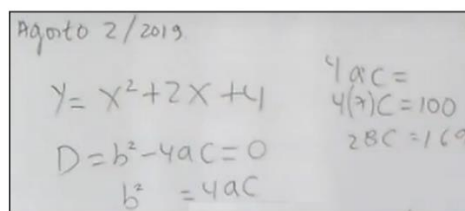 Agosto 2/2019
y = x² + 2x + 4
D = b² - 4ac = 0
b² = 4ac
4ac =
4(7)c = 100
28c = 169